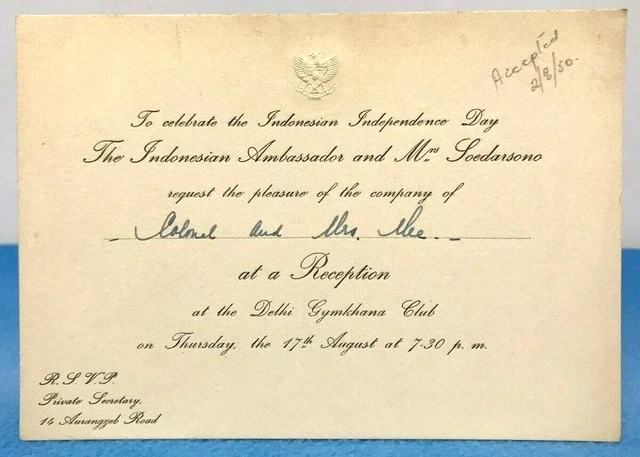 Accepted
2/8/50.
To celebrate the Indonesian Independence Day
The Indonesian Ambassador and Mrs Soedarsono
request the pleasure of the company of
Colonel and Mrs. Mee.
at a Reception
at the Delhi Gymkhana Club
on Thursday, the 17th August at 7-30 p. m.
R. S. V. P.
Private Secretary,
14 Aurangzeb Road